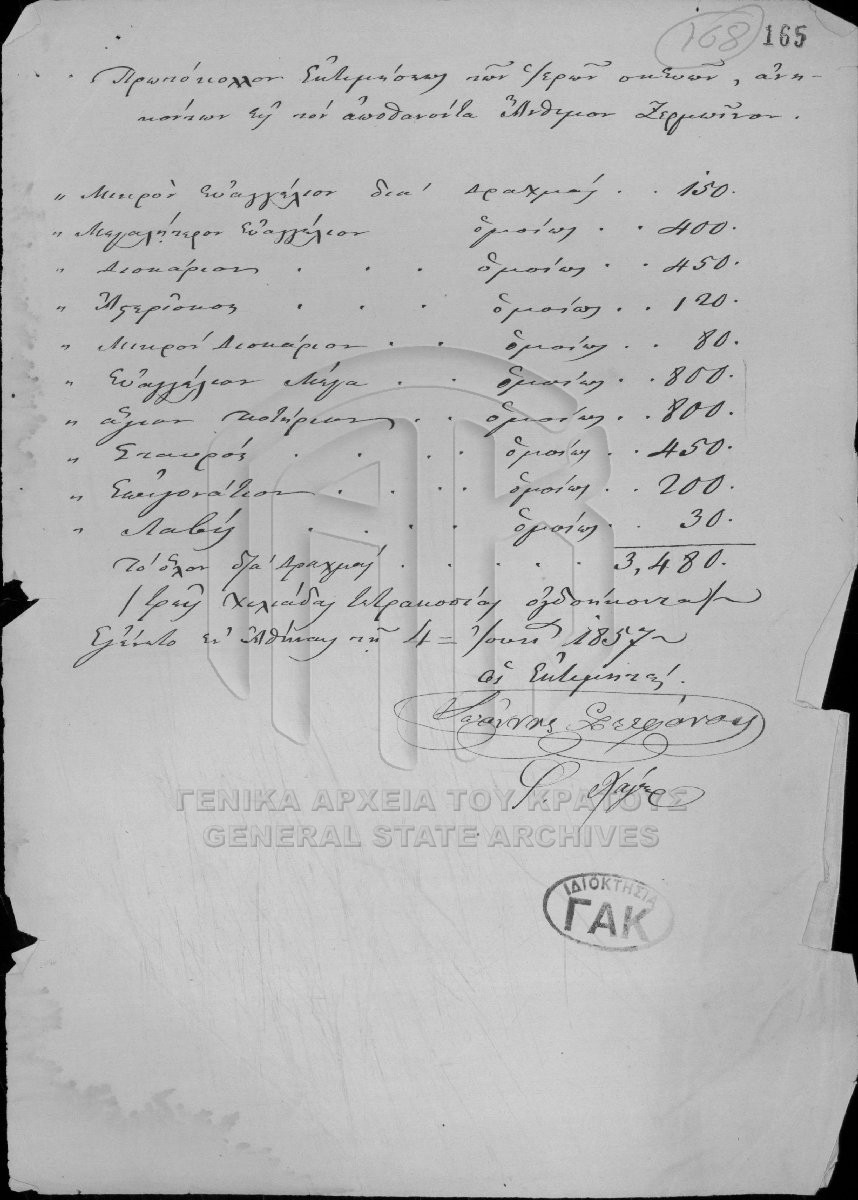 168 165
Πρωτόκολλον Ἐκτιμήσεως τῶν ἱερῶν σκευῶν, ἀνη-
κόντων εἰς τὸν ἀποθανόντα Ἄνθιμον
" Μικρὸν Εὐαγγέλιον διὰ Δραχμάς . . 150.
" Μεγαλήτερον Εὐαγγέλιον ὁμοίως . . 400.
" Δισκάριον . . . ὁμοίως . . 450.
" Ἀστερίσκος . . . ὁμοίως . . 120.
" Μικρὸν Δισκάριον . . ὁμοίως . . 80.
" Εὐαγγέλιον Μέγα . . ὁμοίως . . 800.
" ἅγιον ποτήριον . . ὁμοίως . . 800.
" Σταυρός . . . . ὁμοίως . . 450.
" Ἐπιγονάτιον . . . . ὁμοίως . . 200.
" Λαβίς . . . . ὁμοίως . . 30.
τὸ ὅλον διὰ Δραχμάς . . . . . . 3,480.
/τρεῖς χιλιάδας τετρακοσίας ὀγδοήκοντα/
Ἐγένετο ἐν Ἀθήναις τῇ 4 = 1857
Οἱ Ἐκτιμηταί.
Ἰωάννης Στεφάνου
ΓΕΝΙΚΑ ΑΡΧΕΙΑ ΤΟΥ ΚΡΑΤΟΥΣ
GENERAL STATE ARCHIVES
ΙΔΙΟΚΤΗΣΙΑ
ΓΑΚ